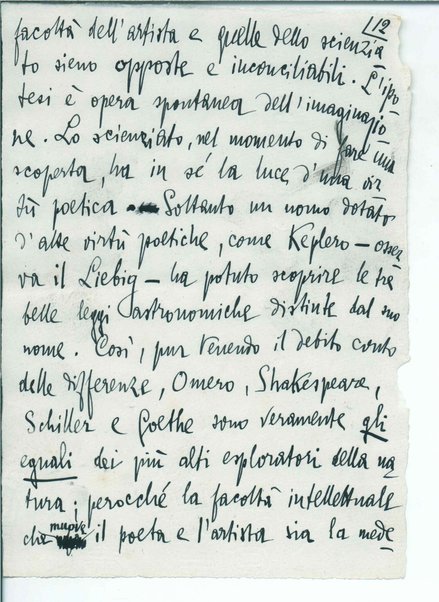 12
facoltà dell'artista e quelle dello scienzia
to sieno opposte e inconciliabili. L'ipo
tesi è opera spontanea dell'imaginazio
ne. Lo scienziato, nel momento di fare una
scoperta, ha in sé la luce d'una vir
tù poetica. Soltanto un uomo dotato
d'alte virtù poetiche, come Keplero — osser
va il Liebig — ha potuto scoprire le tre
belle leggi astronomiche distinte dal suo
nome. Così, pur tenendo il debito conto
delle differenze, Omero, Shakespeare,
Schiller e Goethe sono veramente gli
eguali dei più alti esploratori della na
tura; perocché la facoltà intellettuale
che muove il poeta e l'artista sia la mede